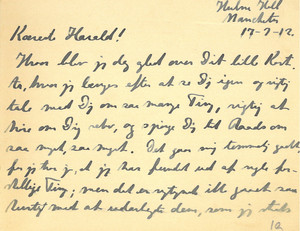 Hulme Hall
Manchester
17-7-12.
Kære Harald!
Hvor blev jeg glad over Dit lille Kort.
Aa, hvor jeg længes efter at se Dig igen og rigtig
tale med Dig om saa mange Ting, rigtig at
høre om Dig selv, og spørge Dig til Raads om
saa meget, saa meget. Det gaar mig temmelig godt
for jeg tror jo, at jeg har fundet ud af nogle for-
skellige Ting; men det er rigtignok ikke gaaet saa
hurtigt med at udarbejde dem, som jeg